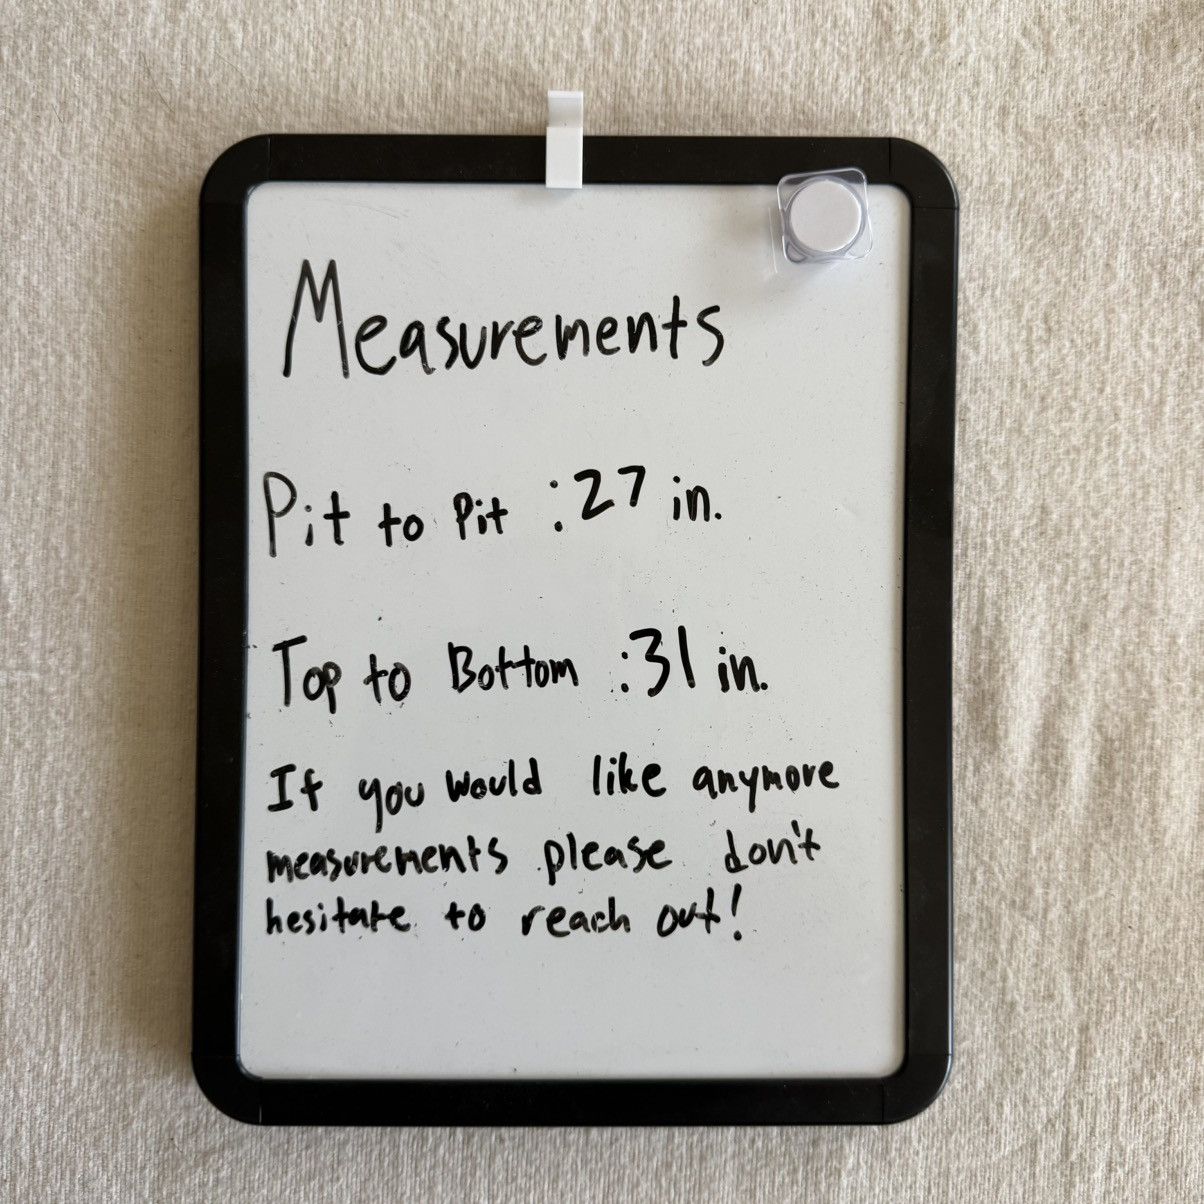 Measurements
Pit to Pit : 27 in.
Top to Bottom : 31 in.
If you would like anymore
measurements please don't
hesitate to reach out!